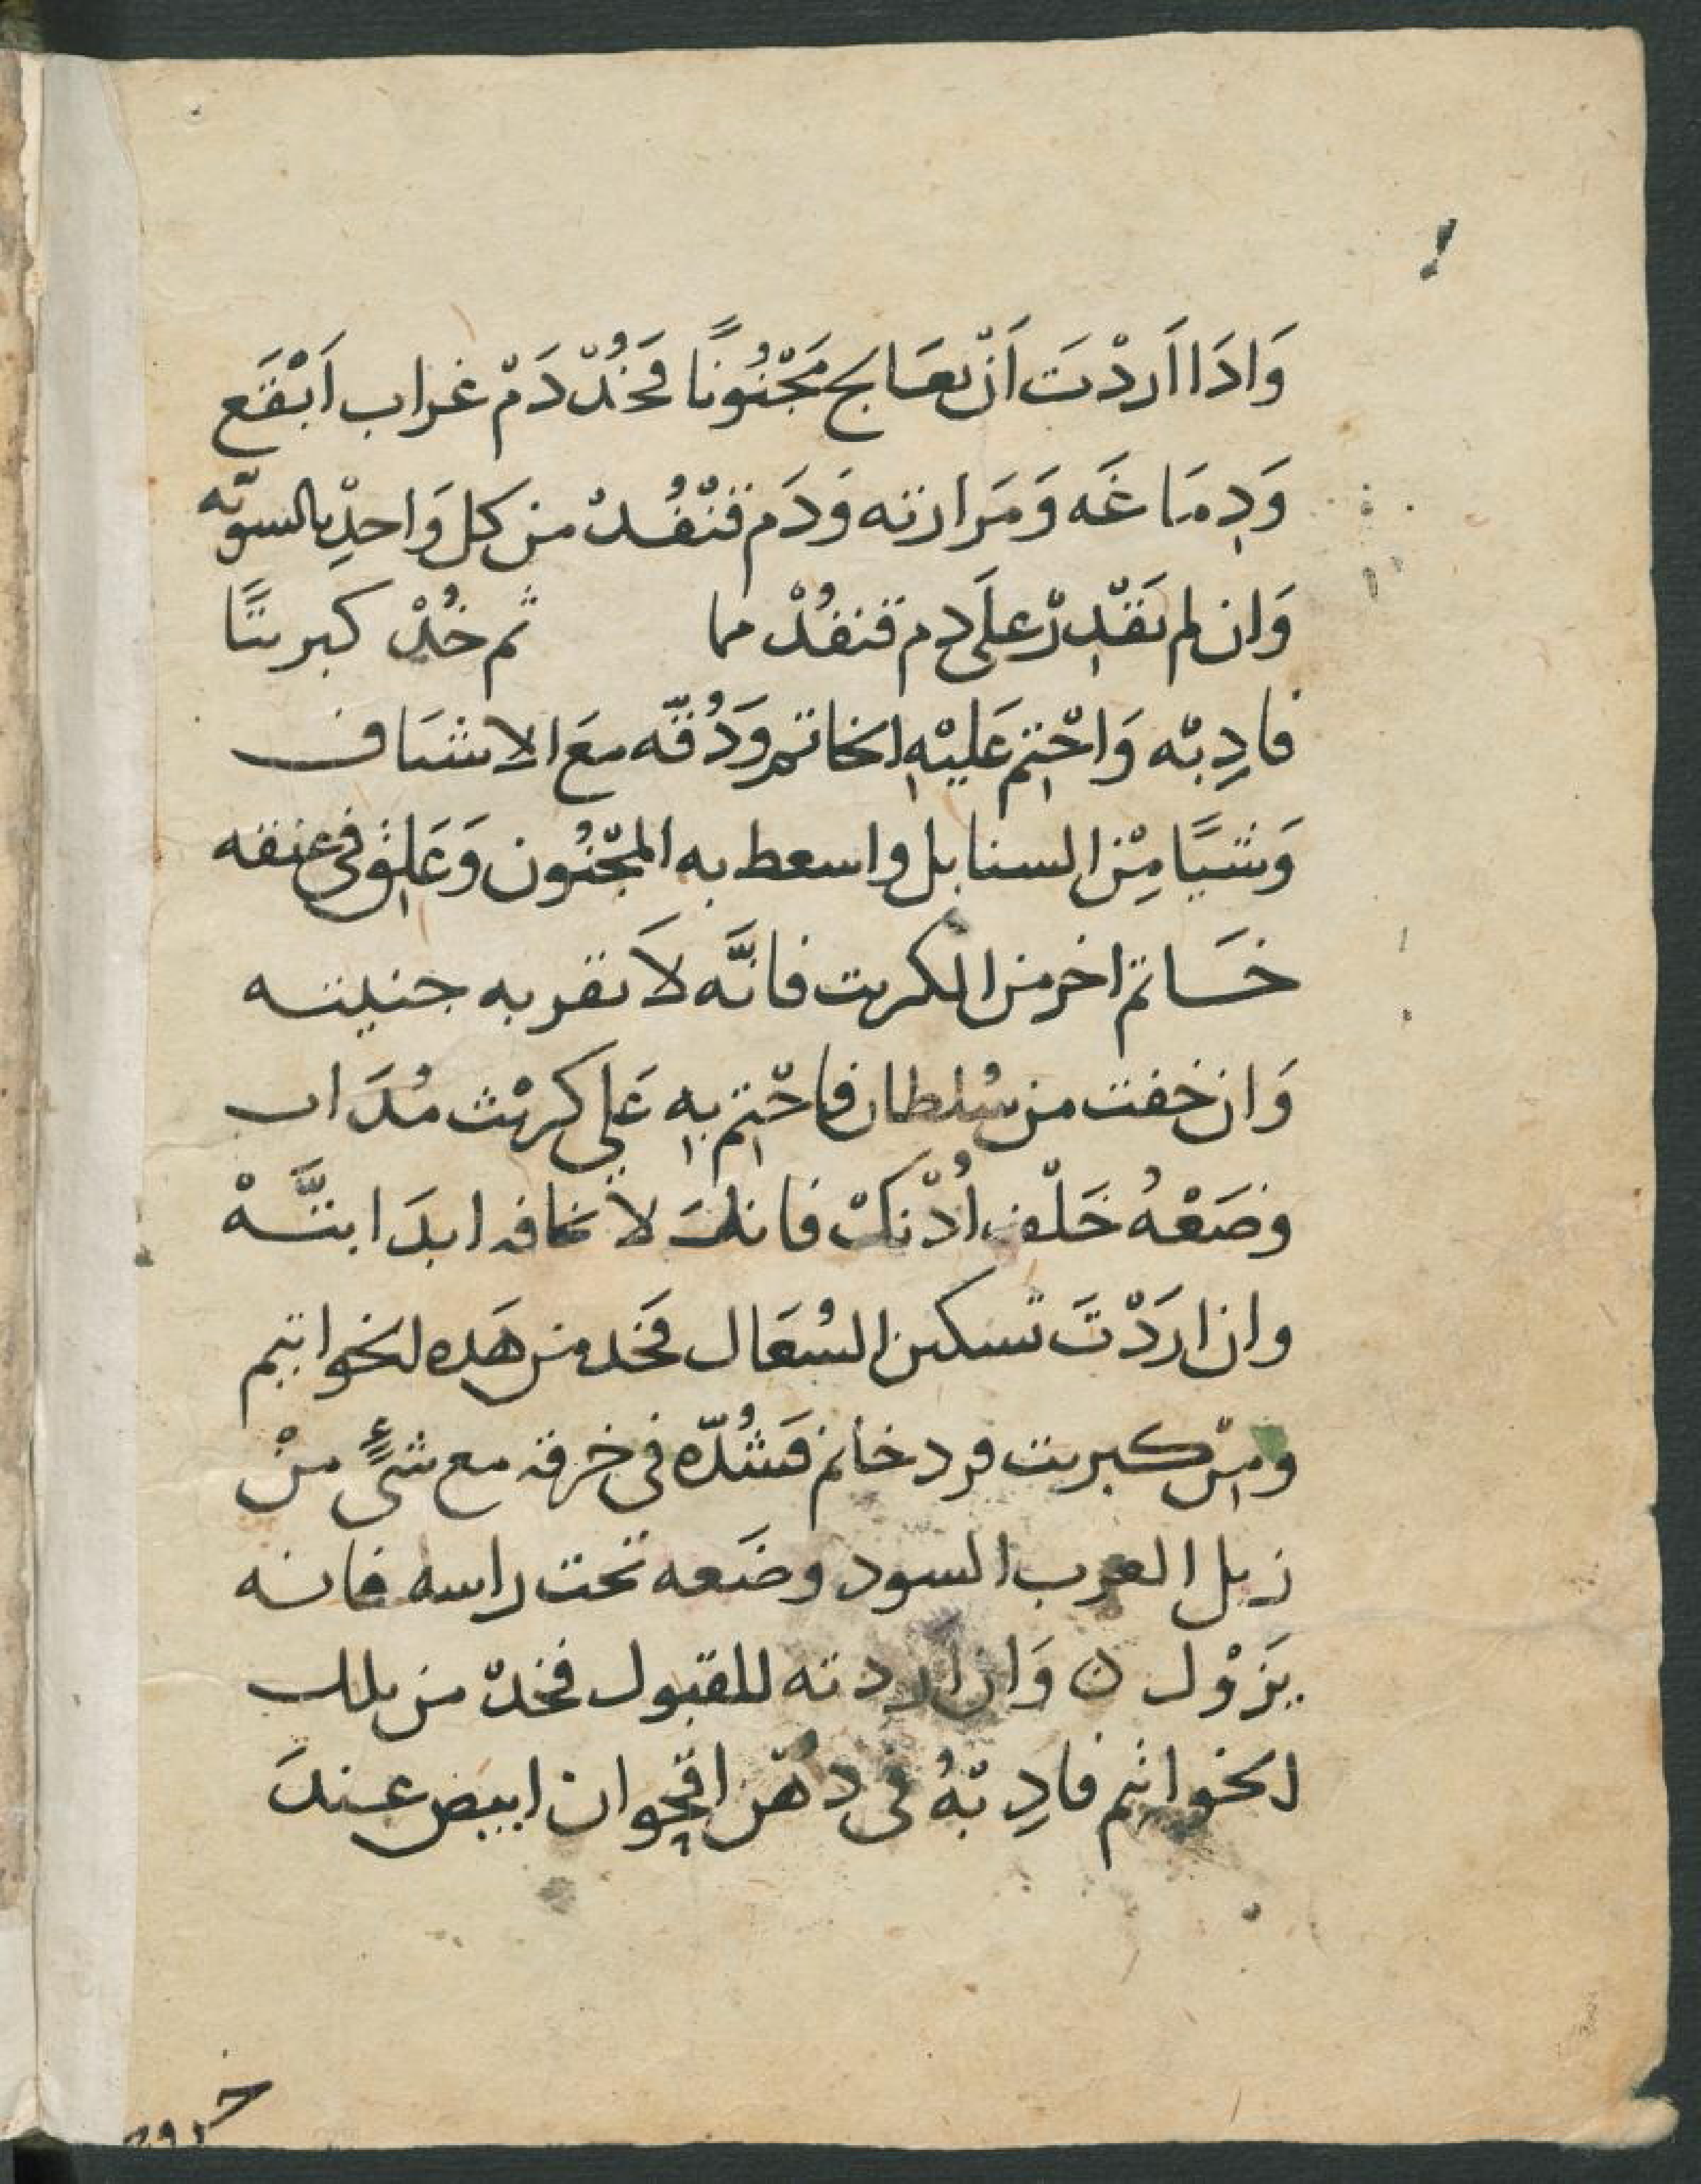 وَادَا اَردْتَ اَنْ تعَالج مَجْنُونًا فَخُدْ دَمْ غراب اَبْقَع
وَدِمَاغَه وَمَرارته وَدَم قنْفُدْ من كل وَاحدٍ بالسويّه
وَان لم تَقْدِرْ علَى دم قنفُدْ مما ثم خُدْ كبريتًا
فادِبْه وَاخْتِم عَليْهِ الخاتم وَدُقّه معَ الاشياف
وَشيًا مِنْ السنابل واسعط به المجْنُون وَعَلِق فى عنقه
خَاتم اخر من الكبريت فانَّه لَا تقربه جنيته
وَان خفت من سُلطان فاختِم بهِ عَلى كبريْت مُدَاب
وضَعْهُ خَلْف اُدْنكْ فانكَ لا تخافه ابدَا بتَّهْ
وان ارَدْتَ تسكين السُعَال فَخد من هَده الخواتيم
ومِنْ كبريت فرد خاتم فَشُدّه فى خرقه مع شىءٍ منْ
زبل العرب السود وضَعه تحت راسه فانه
يَزوْل ن وَان اردته للقبول فخدْ من تلك
الخواتم فادِبْهُ فى دهْن اقحوان ابيض عندَ